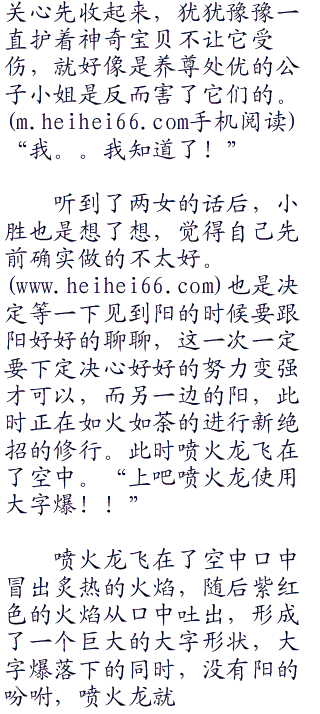 关心先收起来，犹犹豫豫一
直护着神奇宝贝不让它受
伤，就好像是养尊处优的公
子小姐是反而害了它们的。
(m.heihei66.com手机阅读)
“我。。我知道了！”
听到了两女的话后，小
胜也是想了想，觉得自己先
前确实做的不太好。
(www.heihei66.com)也是决
定等一下见到阳的时候要跟
阳好好的聊聊，这一次一定
要下定决心好好的努力变强
才可以，而另一边的阳，此
时正在如火如荼的进行新绝
招的修行。此时喷火龙飞在
了空中。“上吧喷火龙使用
大字爆！！”
喷火龙飞在了空中口中
冒出炙热的火焰，随后紫红
色的火焰从口中吐出，形成
了一个巨大的大字形状，大
字爆落下的同时，没有阳的
吩咐，喷火龙就